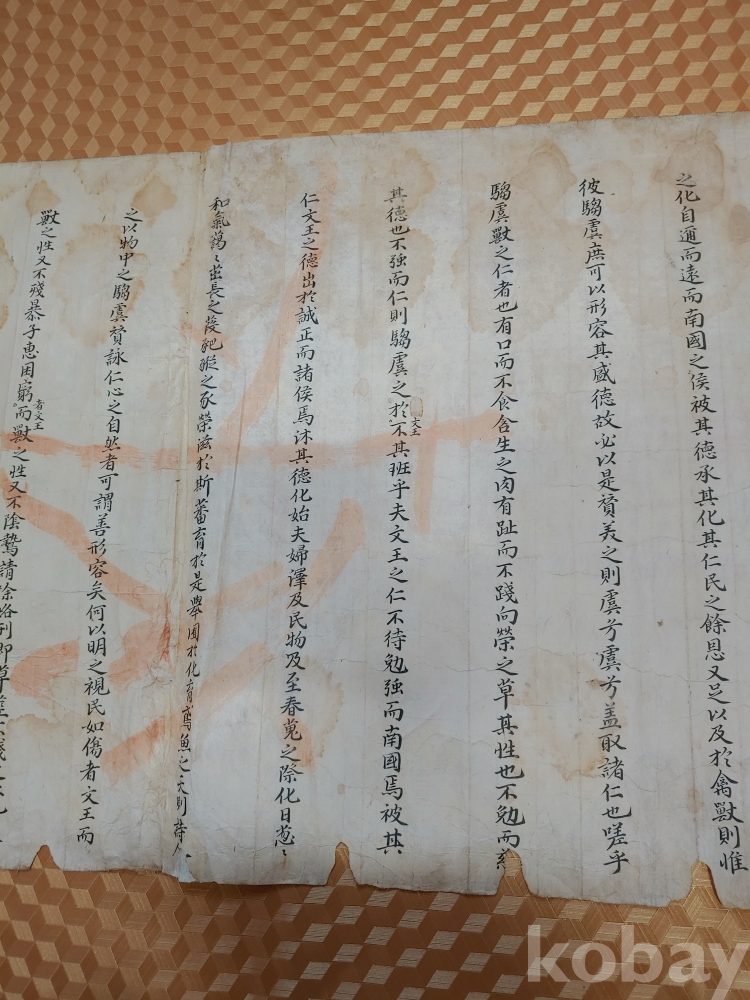 之化自邇而遠而南國之侯被其德承其化其仁民之餘恩又足以及於禽獸則惟
彼騶虞庶可以形容其盛德故必以是贊美之則虞兮虞兮盖取諸仁也嗟乎
騶虞獸之仁者也有口而不食含生之肉有趾而不踐向榮之草其性也不勉而
其德也不強而仁則騶虞之於不其班乎夫文王之仁不待勉強而南國焉被其
文王
仁文王之德出於誠正而諸侯焉沐其德化始夫婦澤及民物及至春蒐之際化日葱〻
和氣藹〻茁長之葭肥豵之豕榮滋於斯蕃育於是舉囿於化育鳶魚之天則
之以物中之騶虞贊詠仁心之自然者可謂善形容矣何以明之視民如傷者文王而
獸之性又不殘暴子惠困窮而獸之性又不陰鷙請
者文王
kobay